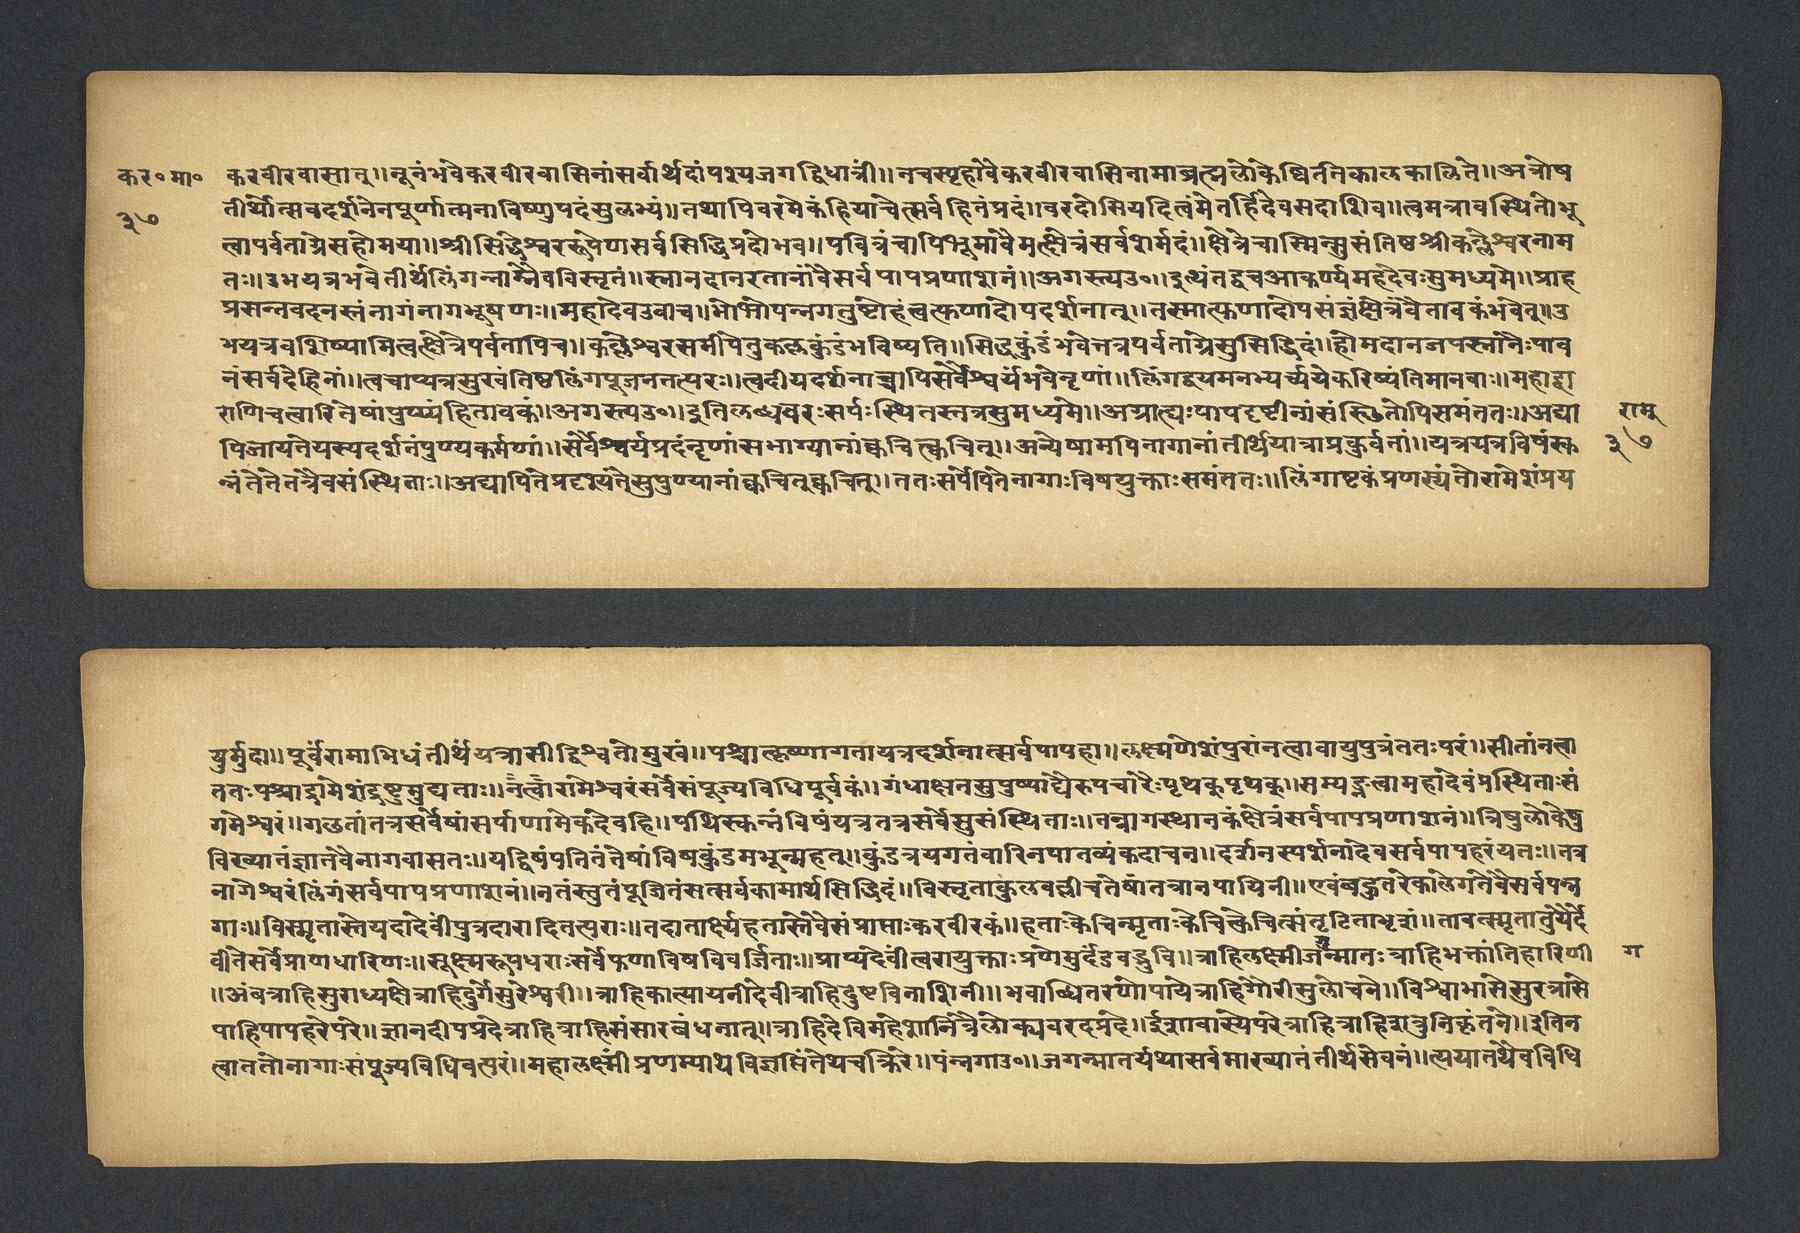 कर॰मा॰
३७
करवीरवासात्॥नूनंभवेकरवीरवासिनांसर्वार्थदांपश्यजगद्विधात्री॥नचस्पृहांवैकरवीरवासिनामाब्रह्मलोकेष्वितिकालकालिते॥अत्रोष
तीर्थोत्सवदर्शनेनपूर्णात्मनाविष्णुपदंसुलभ्यं॥तथापिवरमेकंहियाचेत्सर्वहितंप्रदं॥वरदोसियदित्वंमेतर्हिदेवसदाशिव॥त्वमत्रावस्थितोभू
त्वापर्वताग्रेसहोमया॥श्रीसिद्धेश्वररूपेणसर्वसिद्धिप्रदोभव॥पवित्रंचापिभूमावैमत्क्षेत्रंसर्वशर्मदं॥क्षेत्रेचास्मिन्सुसंतिष्ठश्रीकल्लेश्वरनाम
तः॥उभयत्रभवैतीर्थलिंगन्नाम्नैवविस्तृतं॥स्नानदानरतानांवैसर्वपापप्रणाशनं॥अगस्त्यउ॰॥इत्थंतद्वचआकर्ण्यमहदेवःसुमध्यमे॥प्राह
प्रसन्नवदनस्तंनागंनागभूषणः॥महादेवउवाच॥भोभोपन्नगतुष्टोहंत्वत्फणादोपदर्शनात्॥तस्मात्फणादोपसंज्ञंक्षेत्रंवैतावकंभवेत्॥उ
भयत्रवशिष्यामित्वत्क्षेत्रेपर्वतापिच॥कल्लेश्वरसमीपेतुकल्लकुंडंभविष्यति॥सिद्धकुंडंभवेत्तत्रपर्वताग्रेसुसिद्धिदं॥होमदानजपस्नानैःपाव
नंसर्वदेहिनां॥त्वचाप्यत्रसुखंतिष्ठलिंगपूजनतत्परः॥त्वदीयदर्शनाच्चापिसर्वैश्वर्यंभवेनृणां॥लिंगद्वयमनभ्यर्च्ययेकरिष्यंतिमानवाः॥महाद्वा
राणिचत्वारितेषांपुण्यंहितावकं॥अगस्त्यउ॰॥इतिलब्धवरःसर्पःस्थितस्तत्रसुमध्यमे॥अग्रात्यःपापदृष्टीनांसंस्थितोपिसमंततः॥अद्या
पिजायतेयस्यदर्शनंपुण्यकर्मणां॥सर्वैश्वर्यप्रदंनृणांसभाग्यानांक्वचित्क्वचित्॥अन्येषामपिनागानांतीर्थयात्राप्रकुर्वतां॥यत्रयत्रविषंस्क
न्नंतेतेतत्रैवसंस्थिताः॥अद्यापितेप्रदृश्यंतेसुपुण्यानांक्वचित्क्वचित्॥ततःसर्पेपितेनागाःविषयुक्ताःसमंततः॥लिंगाष्टकंप्रणस्यंतोरामेशंप्रय
रामु
३७
युर्मुदा॥पूर्वंरामाभिधंतीर्थंयत्रासीद्विश्वतोमुखं॥पश्चात्कृष्णागतायत्रदर्शनात्सर्वपापहा॥लक्ष्मणेशंपुरांनत्वावायुपुत्रंततःपरं॥सीतांनत्वा
ततःपश्चाद्रामेशंद्रष्टुमुद्यताः॥नत्वारामेश्वरंसर्वेसंपूज्यविधिपूर्वकं॥गंधाक्षतसुपुष्पाद्यैरुपचारैःपृथक्पृथक्॥सम्यङ्नत्वामहादेवंप्रस्थिताःसं
गमेश्वरं॥गछतांतत्रसर्वेषांसर्पाणामेकदेवहि॥पथिस्कन्नंविषंयत्रतत्रसर्वेसुसंस्थिताः॥तन्नागस्थानकंक्षेत्रंसर्वपापप्रणाशनं॥त्रिषुलोकेषु
विख्यातंज्ञातंवैनागवासतः॥यद्विषंपतितंतेषांविषकुंडमभून्महत्॥कुंडत्रयगतंवारिनपातव्यंकदाचन॥दर्शनस्पर्शनादेवसर्वपापहरंयतः॥तत्र
नागेश्वरंलिंगंसर्वपापप्रणाशनं॥नतंस्तुतंपूजितंसत्सर्वकामार्थसिद्धिदं॥विस्तृताकुलवल्लीचतेषांतत्रानपायिनी॥एवंबहुतरेकालेगतेवैसर्वपन्न
गाः॥विस्मृतास्तेयदादेवींपुत्रदारादितत्पराः॥तदातार्क्ष्येहतास्तेवैसंप्राप्ताःकरवीरकं॥हताःकेचिन्मृताःकेचित्केचित्संतृटिताभृशं॥तावत्स्मृतातुर्यैर्दे
वीतेसर्वेप्राणधारिणः॥सूक्ष्मरूपधराःसर्वेफणाविषविवर्जिताः॥प्राप्यदेवींत्वरायुक्ताःप्रणेमुर्दंडवद्भुवि॥त्राहिलक्ष्मीजगन्मातःत्राहिभक्तार्तिहारिणी
ग
॥अंबत्राहिसुराध्यक्षेत्राहिदुर्गेसुरेश्वरी॥त्राहिकात्यायनीदेवीत्राहिदुष्टविनाशिनी॥भवाब्धितरणोपायेत्राहिगौरीसुलोचने॥विश्वाभासेसुरत्रासे
पाहिपापहरेपरे॥ज्ञानदीपप्रदेत्राहित्राहिसंसारबंधनात्॥त्राहिदेविमहेशानित्रैलोक्यवरदप्रदे॥ईशावास्येपरेत्राहित्राहिशत्रुनिकृंतने॥इतिन
त्वाततोनागाःसंपूज्यविधिवत्परं॥महालक्ष्मींप्रणम्याथेविज्ञप्तिंतेथचक्रिरे॥पंन्नगाउ॰॥जगन्मातर्यथासर्वमाख्यातंतीर्थसेवनं॥त्पयातथैवविधि